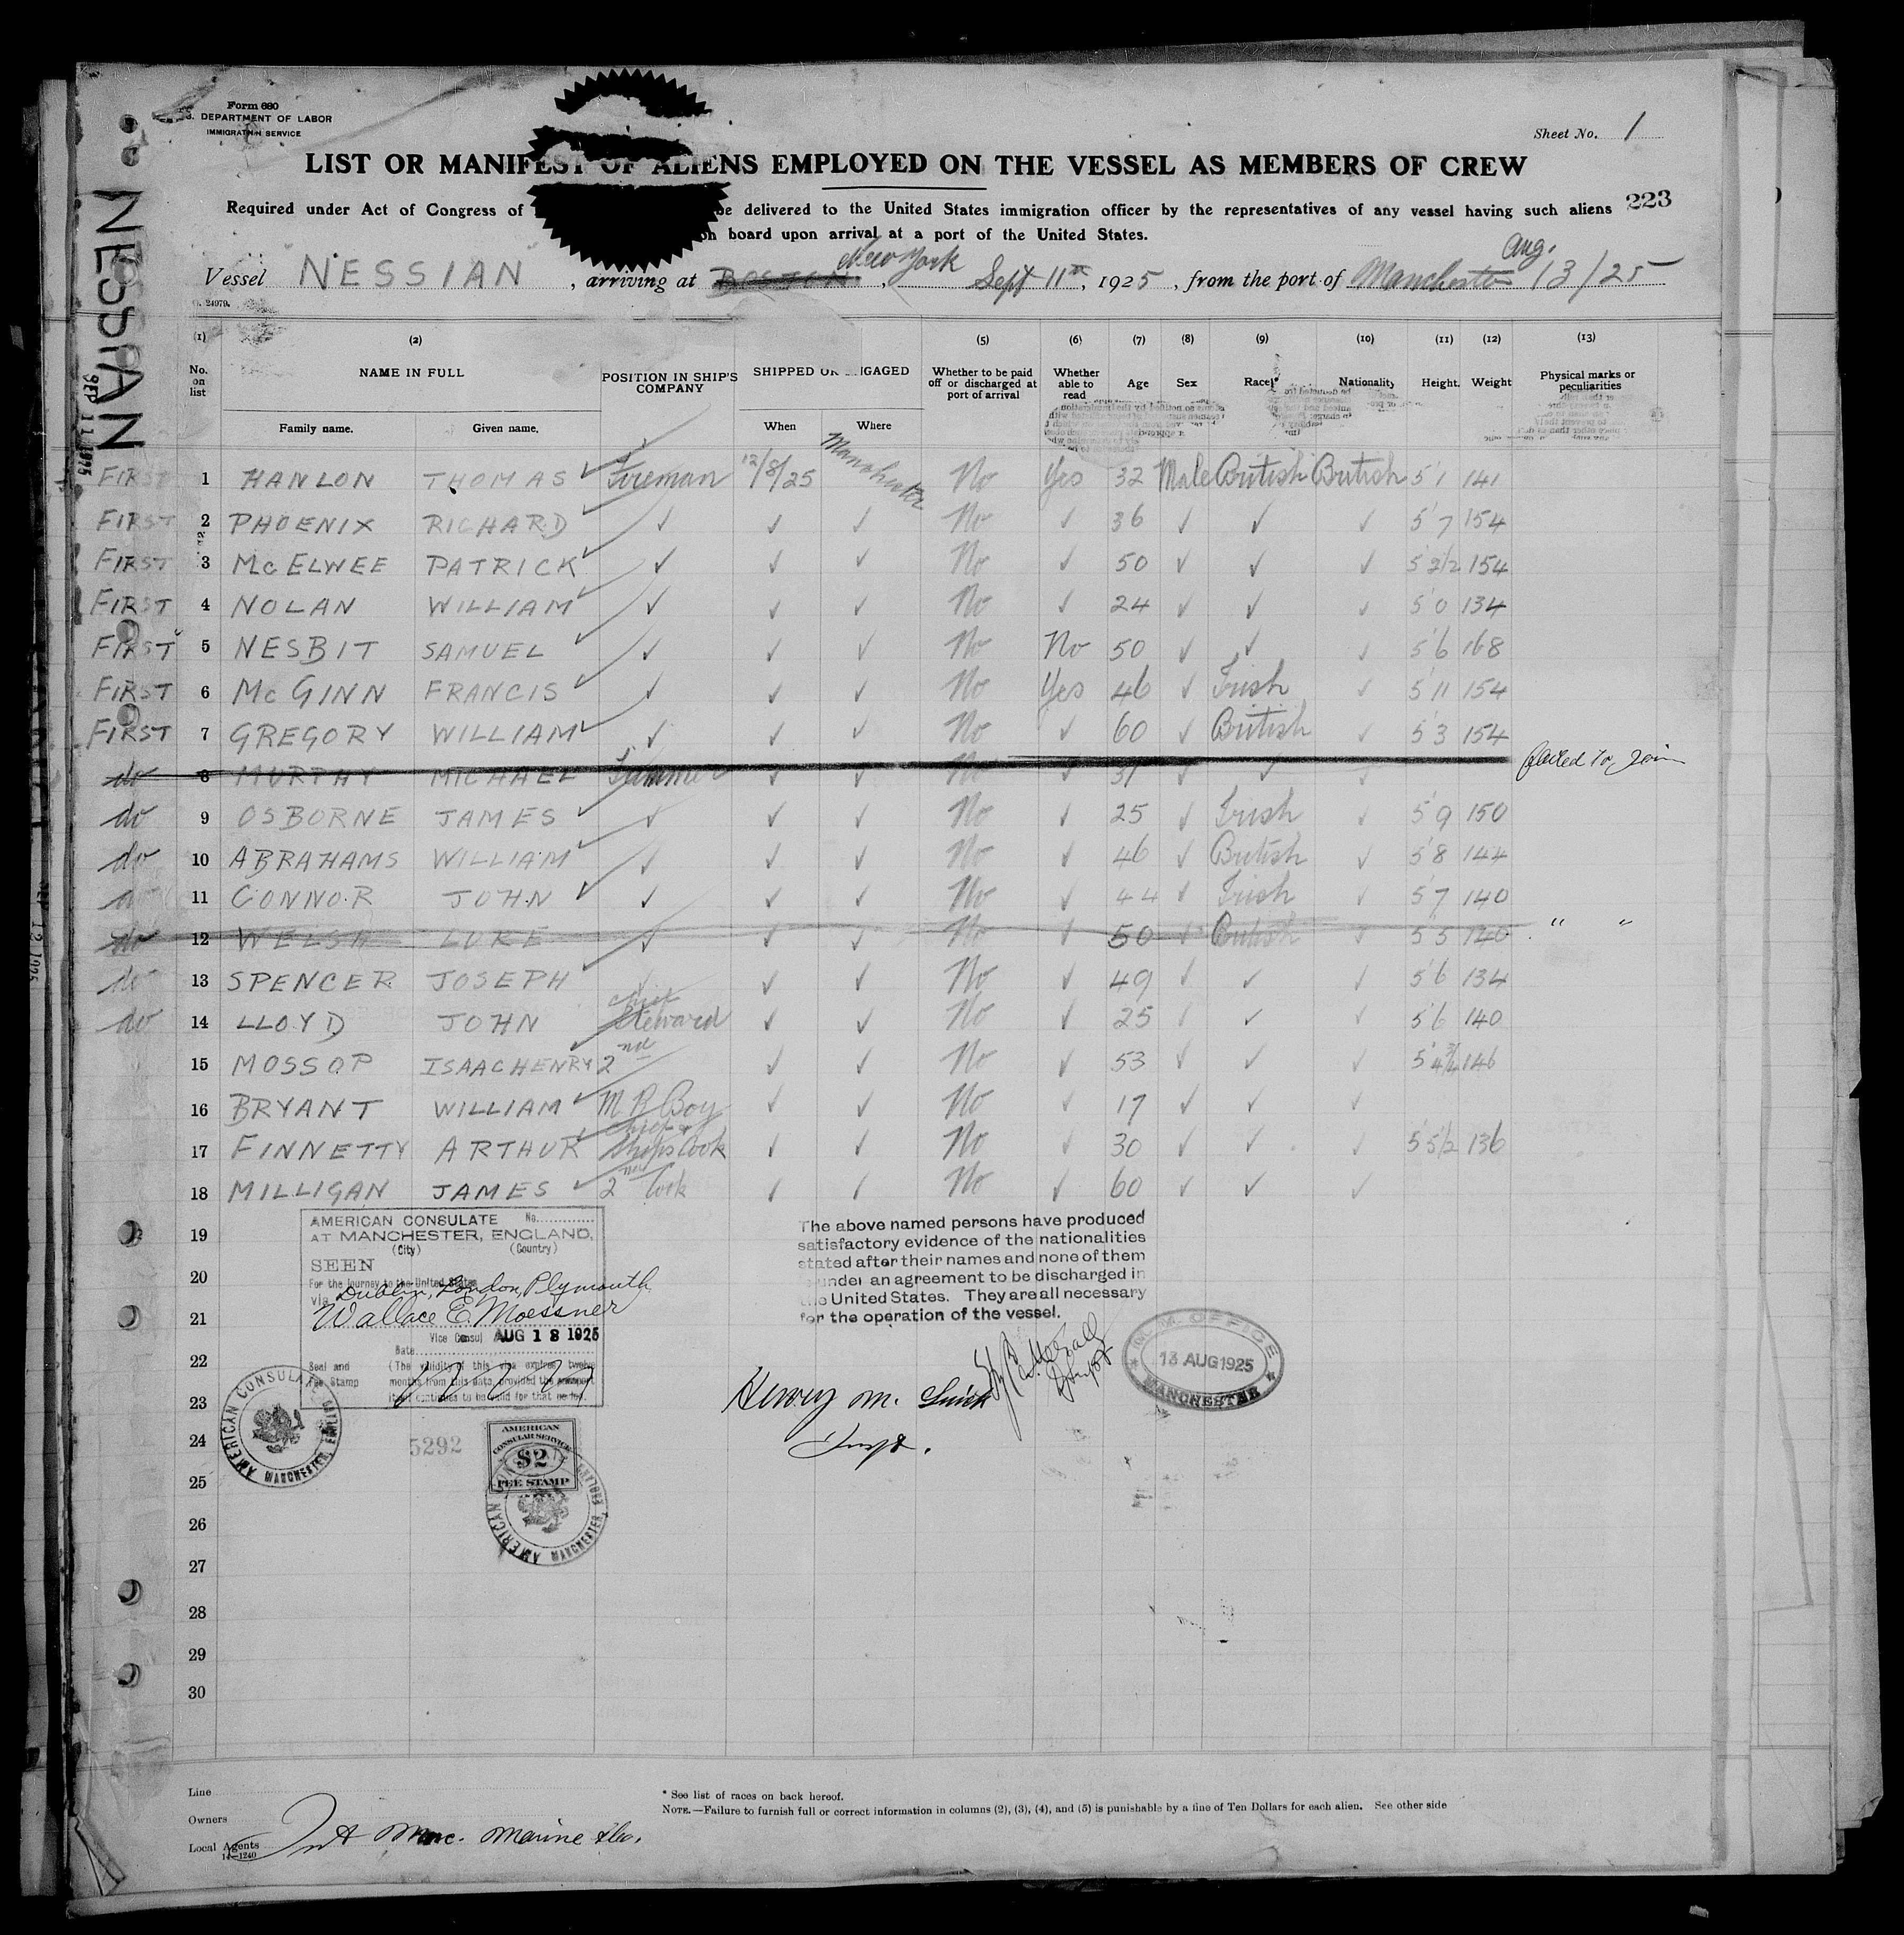 Form 680
S. DEPARTMENT OF LABOR
IMMIGRATION SERVICE
Sheet No. 1
LIST OR MANIFEST OF ALIENS EMPLOYED ON THE VESSEL AS MEMBERS OF CREW
223
Required under Act of Congress of be delivered to the United States immigration officer by the representatives of any vessel having such aliens
on board upon arrival at a port of the United States.
NESSIAN
SEP 11 1925
Vessel NESSIAN , arriving at BOSTON New York , Sept 11th, 1925 , from the port of Manchester Aug. 13/25
24079.
(1) (2) (5) (6) (7) (8) (9) (10) (11) (12) (13)
No. on list NAME IN FULL POSITION IN SHIP'S COMPANY SHIPPED OR ENGAGED Whether to be paid off or discharged at port of arrival Whether able to read Age Sex Race* Nationality Height. Weight Physical marks or peculiarities
Family name. Given name. When Where
FIRST 1 HANLON THOMAS ✓ Fireman 12/8/25 Manchester No Yes 32 Male British British 5'1 141
FIRST 2 PHOENIX RICHARD ✓ ✓ ✓ No ✓ 36 ✓ ✓ ✓ 5'7 154
FIRST 3 McELWEE PATRICK ✓ ✓ ✓ ✓ No ✓ 50 ✓ ✓ ✓ 5 2½ 154
FIRST 4 NOLAN WILLIAM ✓ ✓ ✓ ✓ No ✓ 24 ✓ ✓ ✓ 5'0 134
FIRST 5 NESBIT SAMUEL ✓ ✓ ✓ ✓ No No 50 ✓ ✓ ✓ 5'6 168
FIRST 6 McGINN FRANCIS ✓ ✓ ✓ ✓ No Yes 46 ✓ Irish ✓ 5'11 154
FIRST 7 GREGORY WILLIAM ✓ ✓ ✓ ✓ No ✓ 60 ✓ British ✓ 5'3 154
do 8 MURPHY MICHAEL Trimmer ✓ ✓ No ✓ 31 ✓ ✓ ✓ failed to join
do 9 OSBORNE JAMES ✓ ✓ ✓ ✓ No ✓ 25 ✓ Irish ✓ 5'9 150
do 10 ABRAHAMS WILLIAM ✓ ✓ ✓ ✓ No ✓ 46 ✓ British ✓ 5'8 144
do 11 CONNOR JOHN ✓ ✓ ✓ ✓ No ✓ 44 ✓ Irish ✓ 5'7 140
do 12 WELSH LUKE ✓ ✓ ✓ No ✓ 50 ✓ British ✓ 5'5 140 " "
do 13 SPENCER JOSEPH ✓ ✓ ✓ No ✓ 49 ✓ ✓ ✓ 5'6 134
do 14 LLOYD JOHN Chief Steward ✓ ✓ No ✓ 25 ✓ ✓ ✓ 5'6 140
15 MOSSOP ISAAC HENRY 2nd ✓ ✓ No ✓ 53 ✓ ✓ ✓ 5'4¾ 146
16 BRYANT WILLIAM ✓ M R Boy ✓ ✓ No ✓ 17 ✓ ✓ ✓
17 FINNETTY ARTHUR ✓ Chief & Ships Cook ✓ ✓ No ✓ 30 ✓ ✓ ✓ 5'5½ 136
18 MILLIGAN JAMES ✓ 2nd Cook ✓ ✓ No ✓ 60 ✓ ✓ ✓
19
20
21
22
23
24
25
26
27
28
29
30
AMERICAN CONSULATE No.
AT MANCHESTER, ENGLAND.
(City) (Country)
SEEN
For the journey to the United States
via Dublin, London, Plymouth
Wallace E. Moessner
Vice Consul AUG 13 1925
Date
Seal and Fee Stamp (The validity of this visa expires twelve
months from this date, provided the passport
continues to be valid for that period.
The above named persons have produced
satisfactory evidence of the nationalities
stated after their names and none of them
under an agreement to be discharged in
the United States. They are all necessary
for the operation of the vessel.
IMM. OFFICE
13 AUG 1925
MANCHESTER
Henry M.
Insp.
AMERICAN CONSULATE MANCHESTER, ENGLAND
5292
AMERICAN
CONSULAR SERVICE
$2
FEE STAMP
AMERICAN CONSULATE MANCHESTER, ENGLAND
Line
Owners
Local Agents Int Merc. Marine Co.
14—1240
* See list of races on back hereof.
NOTE.—Failure to furnish full or correct information in columns (2), (3), (4), and (5) is punishable by a fine of Ten Dollars for each alien. See other side